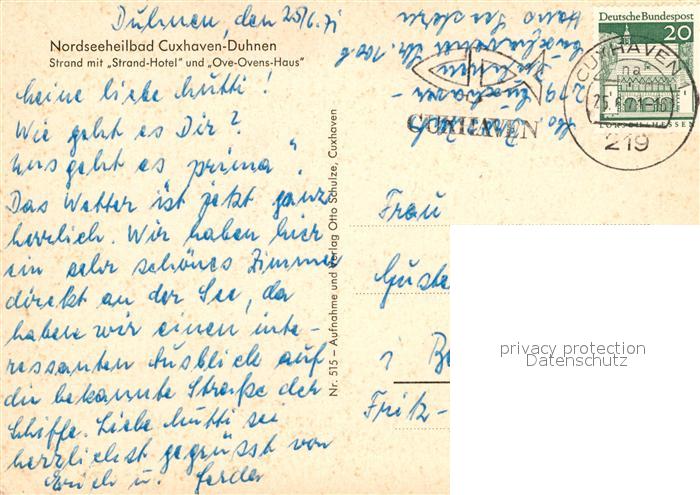 Duhnen, den 25/6.71
Nordseeheilbad Cuxhaven-Duhnen
Strand mit „Strand-Hotel" und „Ove-Ovens-Haus"
Meine liebe Mutti!
Wie geht es Dir?
Uns geht es prima!
Das Wetter ist jetzt ganz
herrlich. Wir haben hier
ein sehr schönes Zimmer
direkt an der See, da
haben wir einen inte-
ressanten Ausblick auf
die bekannte Straße der
Schiffe. Liebe Mutti sei
herzlichst gegrüsst von
Erich u. Gerda
Nr. 515 – Aufnahme und Verlag Otto Schulze, Cuxhaven
219 Cuxhaven-
Duhnen
Cuxhavener Str.
Deutsche Bundespost
20
LORSCH/HESSEN
CUXHAVEN 1
na
219
CUXHAVEN
Frau
1 Be
Fritz-
privacy protection
Datenschutz